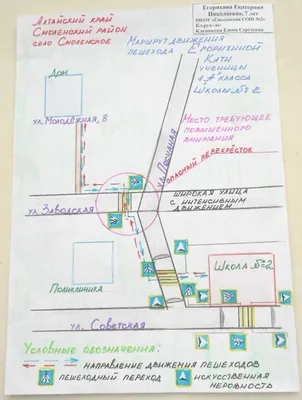 Алтайский край
Смоленский район
село Смоленское
Егорихина Екатерина
Николаевна, 7 лет
МБОУ «Смоленская СОШ №2»
Маршрут движения
пешехода Егорихиной
Кати
ученицы
1 "А" класса
Школы №2
Дом
ул. Молодёжная, 8
Место требующее
повышенного
внимания
опасный перекрёсток
широкая улица
с интенсивным
движением
ул. Заводская
Школа №2
Поликлиника
ул. Советская
Условные обозначения:
направление движения пешеходов
пешеходный переход
искусственная
неровность